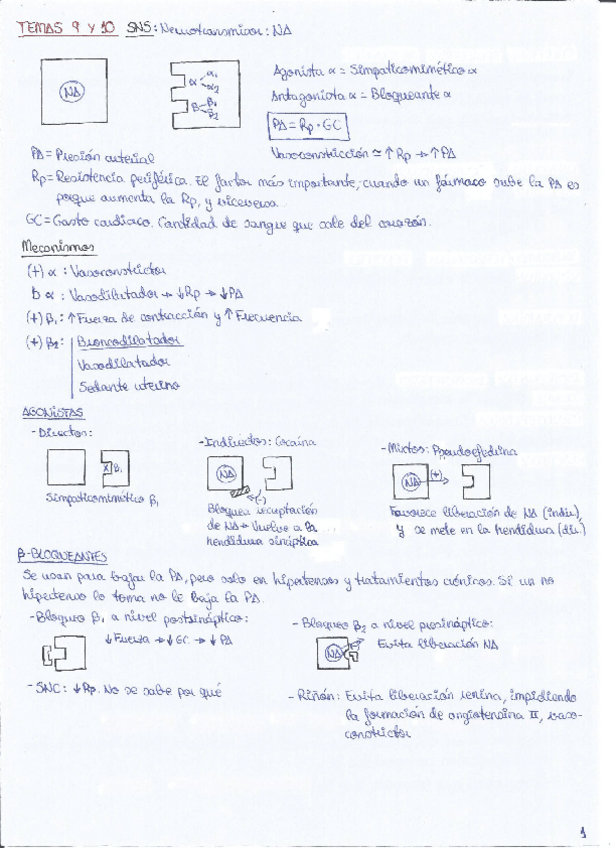 TEMAS 9 Y 10 SNS: Neurotransmisor: NA
NA
α α1
α2
β β1
β2
Agonista α = Simpaticomimético α
Antagonista α = Bloqueante α
PA = Rp · GC
Vasoconstricción ≃ ↑ Rp → ↑ PA
PA = Presión arterial
Rp = Resistencia periférica. El factor más importante, cuando un fármaco sube la PA es
porque aumenta la Rp, y viceversa.
GC = Gasto cardiaco. Cantidad de sangre que sale del corazón.
Mecanismos
(+) α : Vasoconstrictor
b α : Vasodilatador → ↓ Rp → ↓ PA
(+) β1 : ↑ Fuerza de contracción y ↑ Frecuencia
(+) β2 : Broncodilatador
Vasodilatador
Sedante uterino
AGONISTAS
- Directos:
β1
Simpaticomimético β1
- Indirectos: Cocaína
NA
(-)
Bloquea recaptación
de NA → Vuelve a la
hendidura sináptica
- Mixtos: Pseudoefedrina
NA (+)
Favorece liberación de NA (indir),
y se mete en la hendidura (dir)
β-BLOQUEANTES
Se usan para bajar la PA, pero solo en hipertensos y tratamientos crónicos. Si un no
hipertenso lo toma no le baja la PA.
- Bloqueo β1 a nivel postsináptico:
↓ Fuerza → ↓ GC → ↓ PA
- Bloqueo β2 a nivel presináptico:
NA
Evita liberación NA
- SNC: ↓ Rp. No se sabe por qué
- Riñón: Evita liberación renina, impidiendo
la formación de angiotensina II, vaso-
constrictor
1